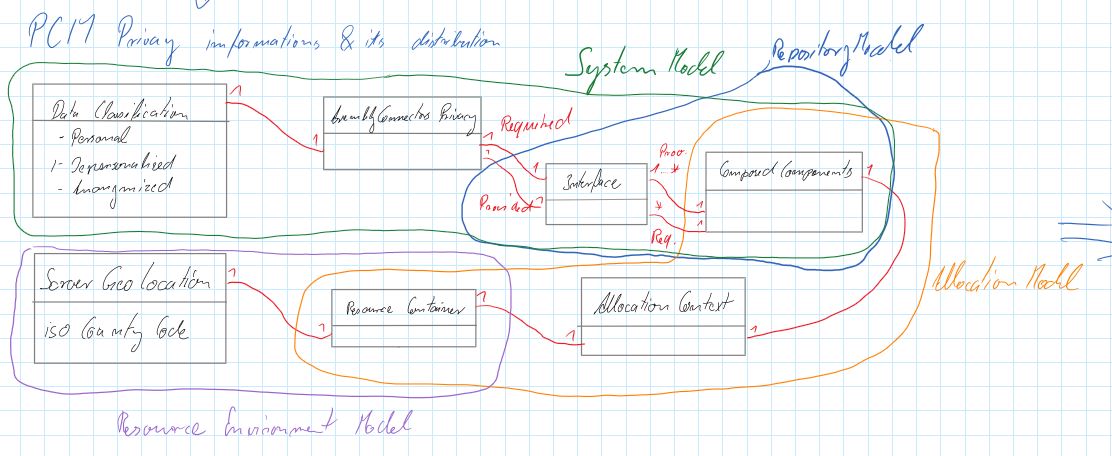 PCM Privacy informations & its distribution
System Model
Repository Model
Data Classification
- Personal
- Depersonalized
- Anonymized
1
1
Assembly Connectors Privacy
1
Required
1
1
Provided
1
Interface
Prov
1..*
*
Req.
1
1
Composed Components
1
Server Geo Location
iso Country Code
1
1
Resource Container
1
1
Allocation Context
1
Allocation Model
Resource Environment Model